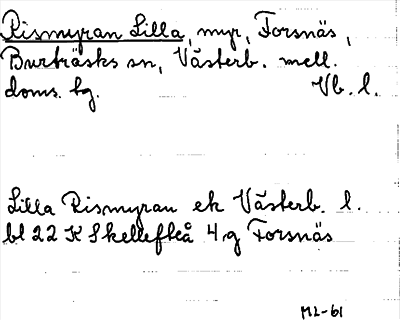 Rismyran Lilla, myr, Forsnäs,
Burträsks sn, Västerb. mell.
doms. tg. Vb. l.
Lilla Rismyran ek Västerb. l.
bl 22 K Skellefteå 4g Forsnäs
ML-61